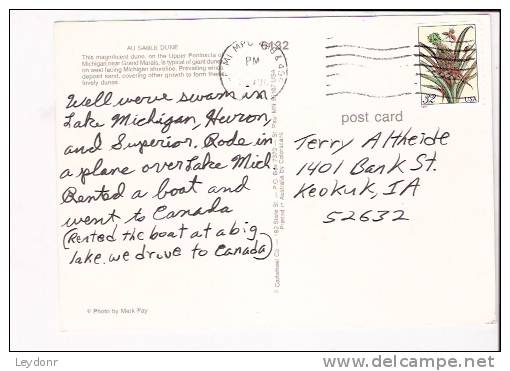 AU SABLE DUNE
This magnificent dune, on the Upper Peninsula of
Michigan near Grand Marais, is typical of giant dunes
on west facing Michigan shoreline. Prevailing winds
deposit sand, covering other growth to form these
lovely dunes.
6132
PM
32 USA
post card
Well we've swam in
Lake Michigan, Huron,
and Superior. Rode in
a plane over Lake Mich
Rented a boat and
went to Canada
(Rented the boat at a big
lake. we drove to Canada)
Terry Altheide
1401 Bank St.
Keokuk, IA
52632
182 State St. — P.O. Box 7332 — St. Paul, MN
Printed in Australia by Colorscans
© Photo by Mark Ray
Leydonr
delcampe.net